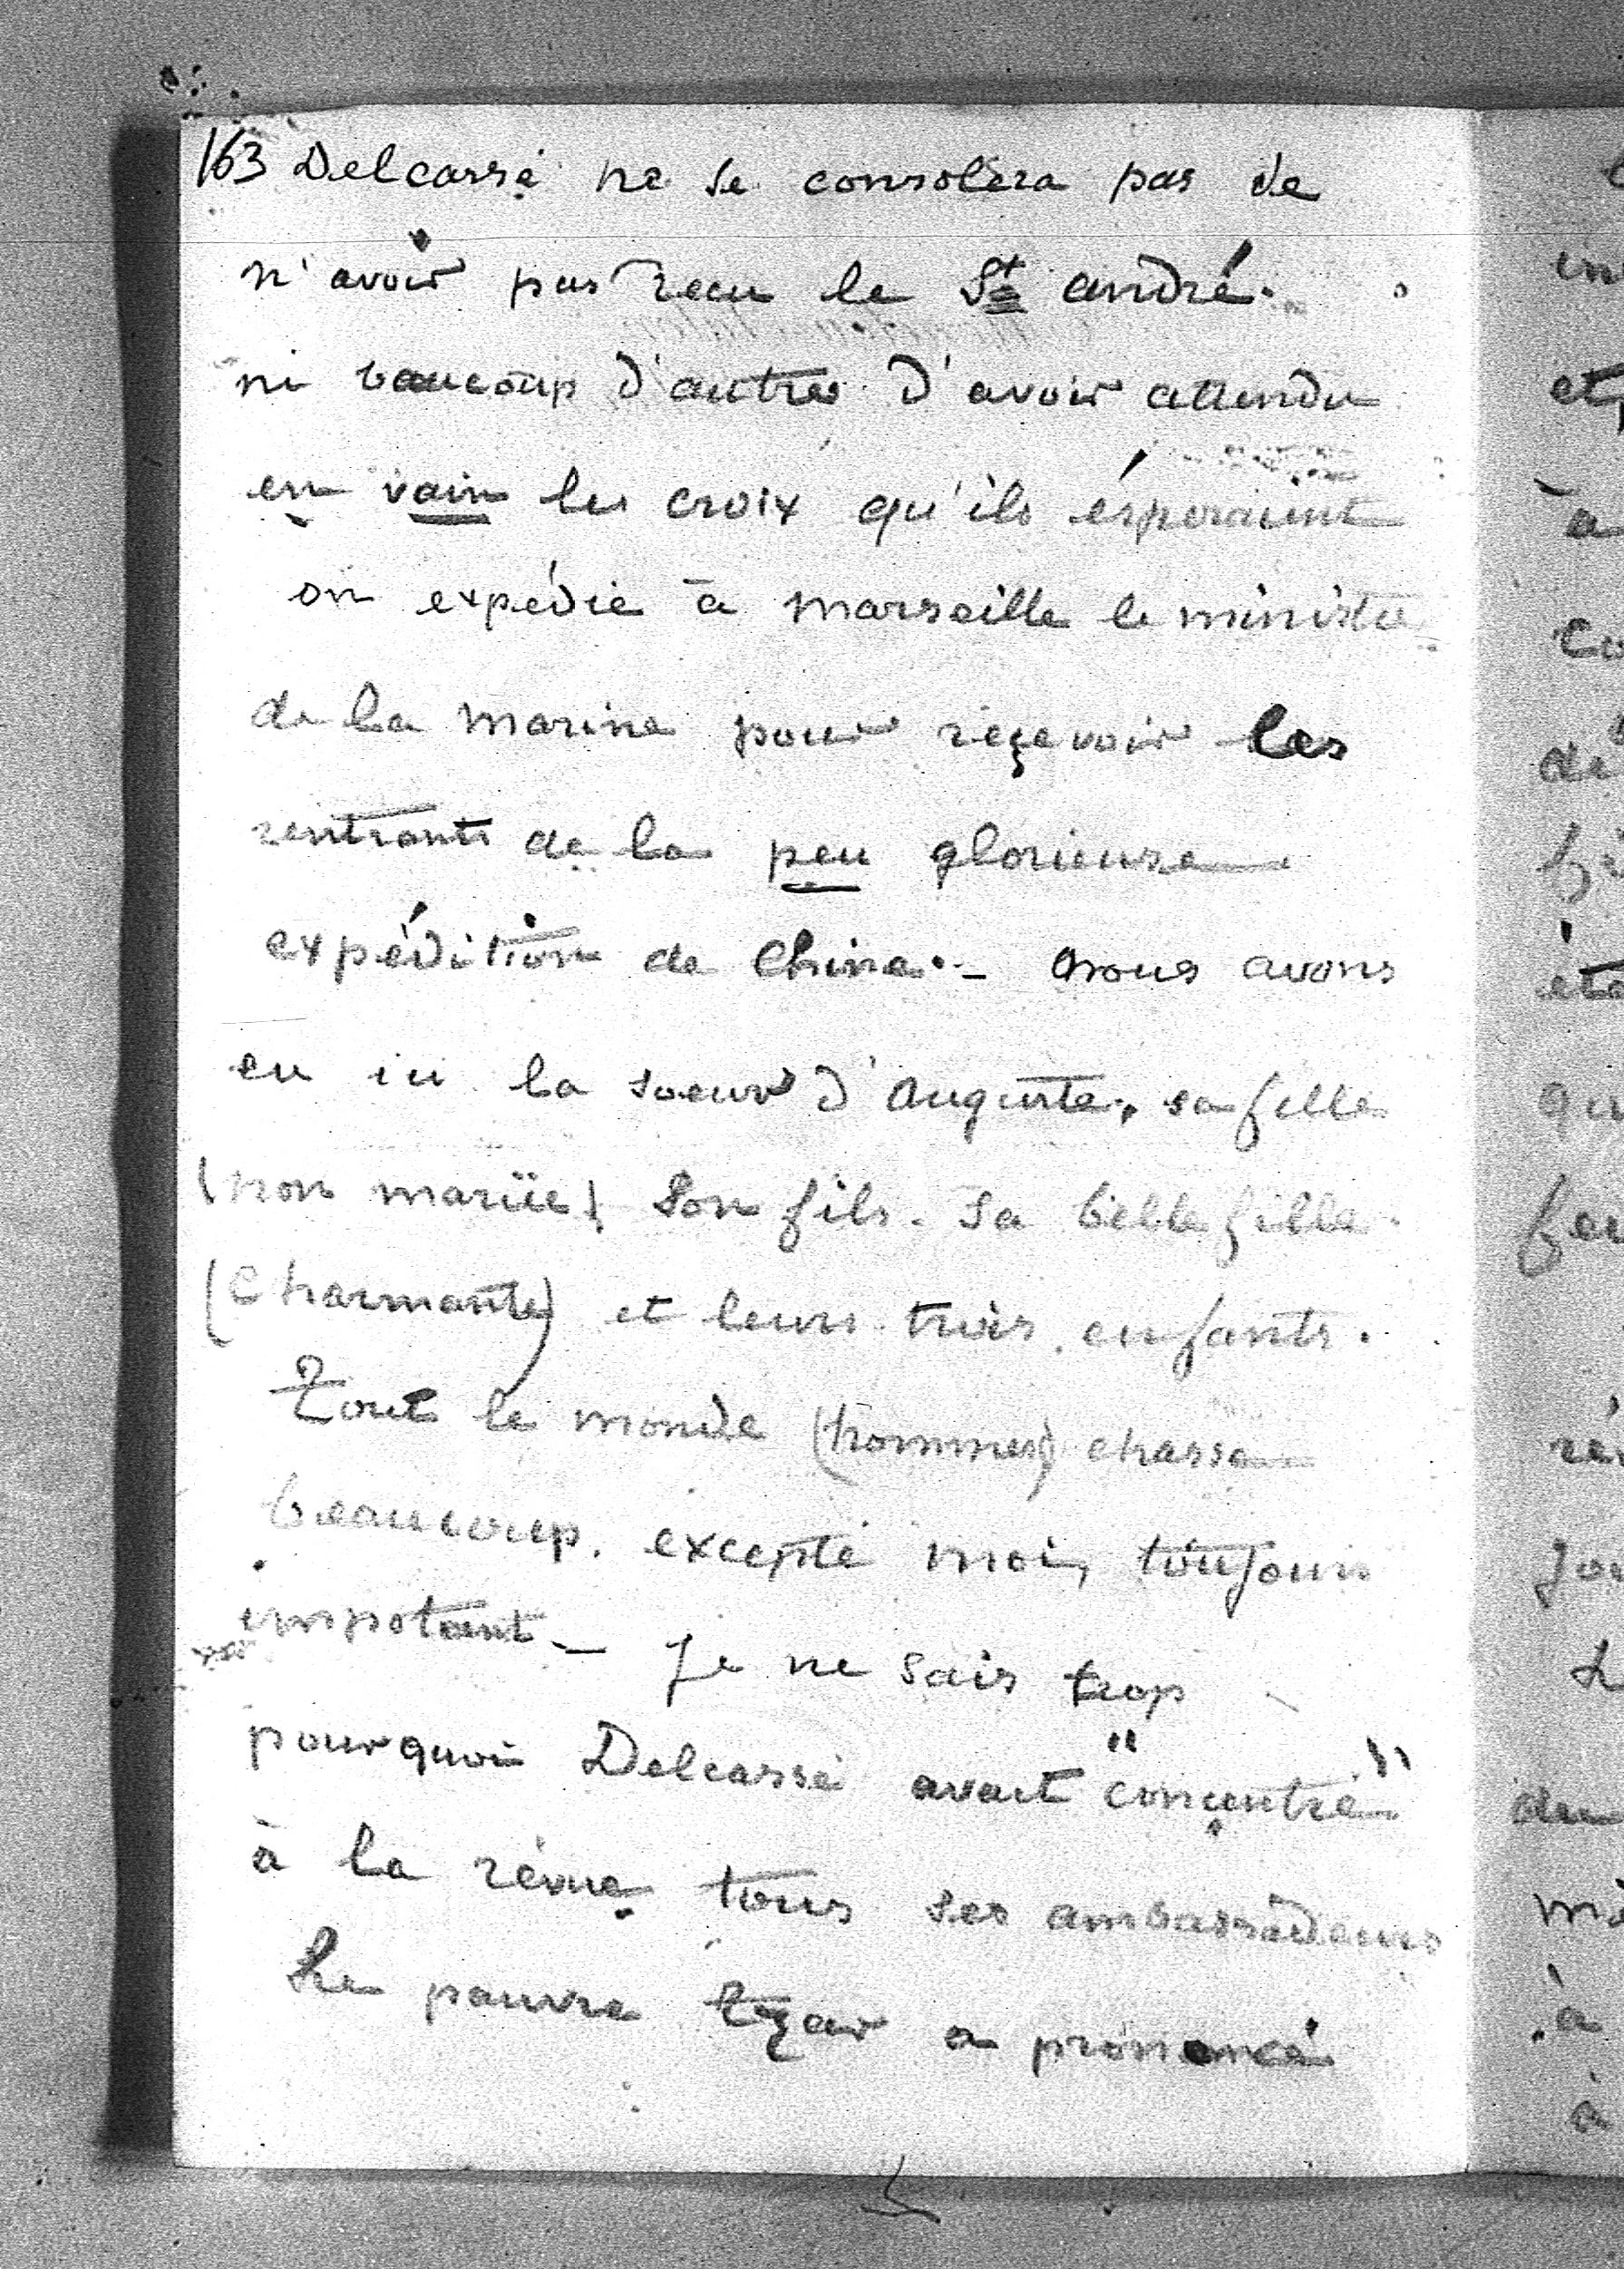 163 Delcassé ne se consolera pas de
n'avoir pas reçu le St André.
ni beaucoup d'autres d'avoir attendu
en vain les croix qu'ils éspéraient
on expédie à Marseille le ministre
de la marine pour reçevoir les
rentrants de la peu glorieuse
expédition de Chine. - Nous avons
eu ici la soeur d'Auguste, sa fille
(non mariée) Son fils. Sa belle fille.
(Charmante) et leurs trois enfants.
Tout le monde (hommes) chasse
beaucoup. excepté moi, toujours
impotant - Je ne sais trop
pourquoi Delcassé avait "conçentré"
à la révue tous ses ambassadeurs
Le pauvre Tzar a prononcé